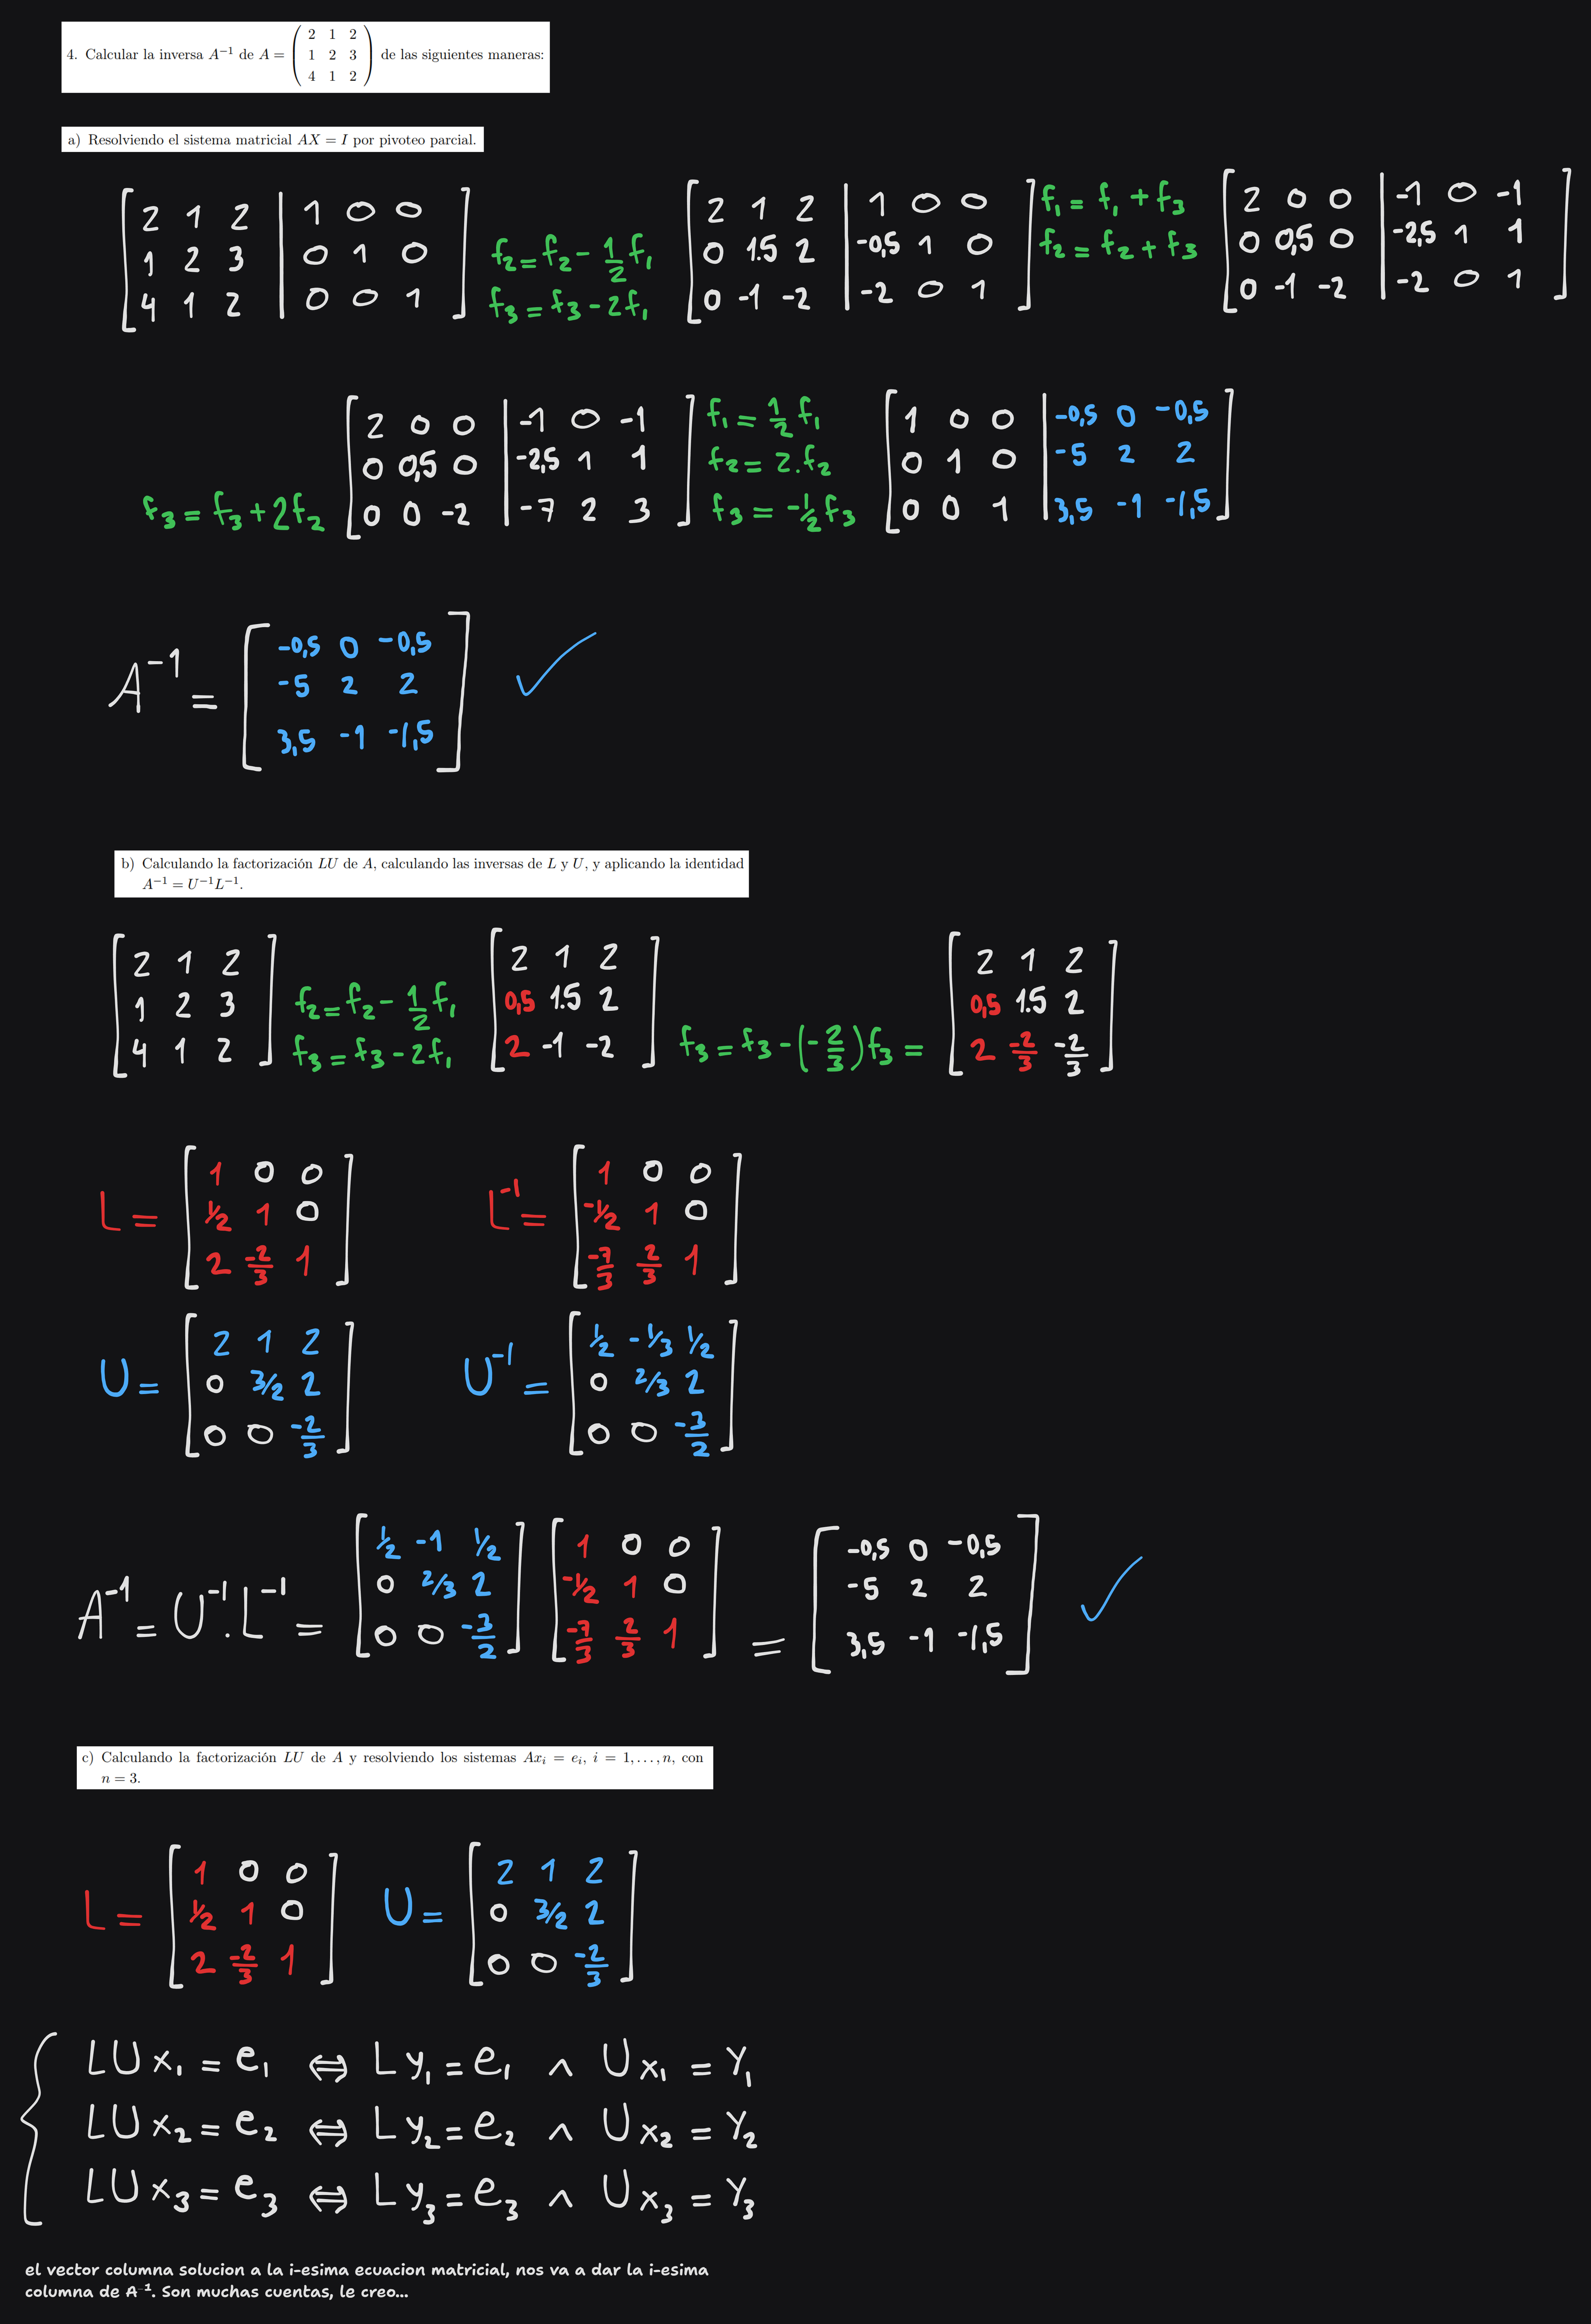 4. Calcular la inversa A⁻¹ de A = ( 2 1 2 ; 1 2 3 ; 4 1 2 ) de las siguientes maneras:
a) Resolviendo el sistema matricial AX = I por pivoteo parcial.
[ 2 1 2 | 1 0 0 ; 1 2 3 | 0 1 0 ; 4 1 2 | 0 0 1 ] f₂ = f₂ - 1/2 f₁ f₃ = f₃ - 2f₁ [ 2 1 2 | 1 0 0 ; 0 1.5 2 | -0,5 1 0 ; 0 -1 -2 | -2 0 1 ] f₁ = f₁ + f₃ f₂ = f₂ + f₃ [ 2 0 0 | -1 0 -1 ; 0 0,5 0 | -2,5 1 1 ; 0 -1 -2 | -2 0 1 ]
f₃ = f₃ + 2f₂ [ 2 0 0 | -1 0 -1 ; 0 0,5 0 | -2,5 1 1 ; 0 0 -2 | -7 2 3 ] f₁ = 1/2 f₁ f₂ = 2.f₂ f₃ = -1/2 f₃ [ 1 0 0 | -0,5 0 -0,5 ; 0 1 0 | -5 2 2 ; 0 0 1 | 3,5 -1 -1,5 ]
A⁻¹ = [ -0,5 0 -0,5 ; -5 2 2 ; 3,5 -1 -1,5 ] ✓
b) Calculando la factorización LU de A, calculando las inversas de L y U, y aplicando la identidad
A⁻¹ = U⁻¹L⁻¹.
[ 2 1 2 ; 1 2 3 ; 4 1 2 ] f₂ = f₂ - 1/2 f₁ f₃ = f₃ - 2f₁ [ 2 1 2 ; 0,5 1.5 2 ; 2 -1 -2 ] f₃ = f₃ - (-2/3) f₃ = [ 2 1 2 ; 0,5 1.5 2 ; 2 -2/3 -2/3 ]
L = [ 1 0 0 ; 1/2 1 0 ; 2 -2/3 1 ] L⁻¹ = [ 1 0 0 ; -1/2 1 0 ; -7/3 2/3 1 ]
U = [ 2 1 2 ; 0 3/2 2 ; 0 0 -2/3 ] U⁻¹ = [ 1/2 -1/3 1/2 ; 0 2/3 2 ; 0 0 -3/2 ]
A⁻¹ = U⁻¹.L⁻¹ = [ 1/2 -1 1/2 ; 0 2/3 2 ; 0 0 -3/2 ] [ 1 0 0 ; -1/2 1 0 ; -7/3 2/3 1 ] = [ -0,5 0 -0,5 ; -5 2 2 ; 3,5 -1 -1,5 ] ✓
c) Calculando la factorización LU de A y resolviendo los sistemas Axᵢ = eᵢ, i = 1, . . . , n, con
n = 3.
L = [ 1 0 0 ; 1/2 1 0 ; 2 -2/3 1 ] U = [ 2 1 2 ; 0 3/2 2 ; 0 0 -2/3 ]
{ LUx₁ = e₁ ⇔ Ly₁ = e₁ ∧ Ux₁ = Y₁
LUx₂ = e₂ ⇔ Ly₂ = e₂ ∧ Ux₂ = Y₂
LUx₃ = e₃ ⇔ Ly₃ = e₃ ∧ Ux₃ = Y₃
el vector columna solucion a la i-esima ecuacion matricial, nos va a dar la i-esima
columna de A⁻¹. Son muchas cuentas, le creo...